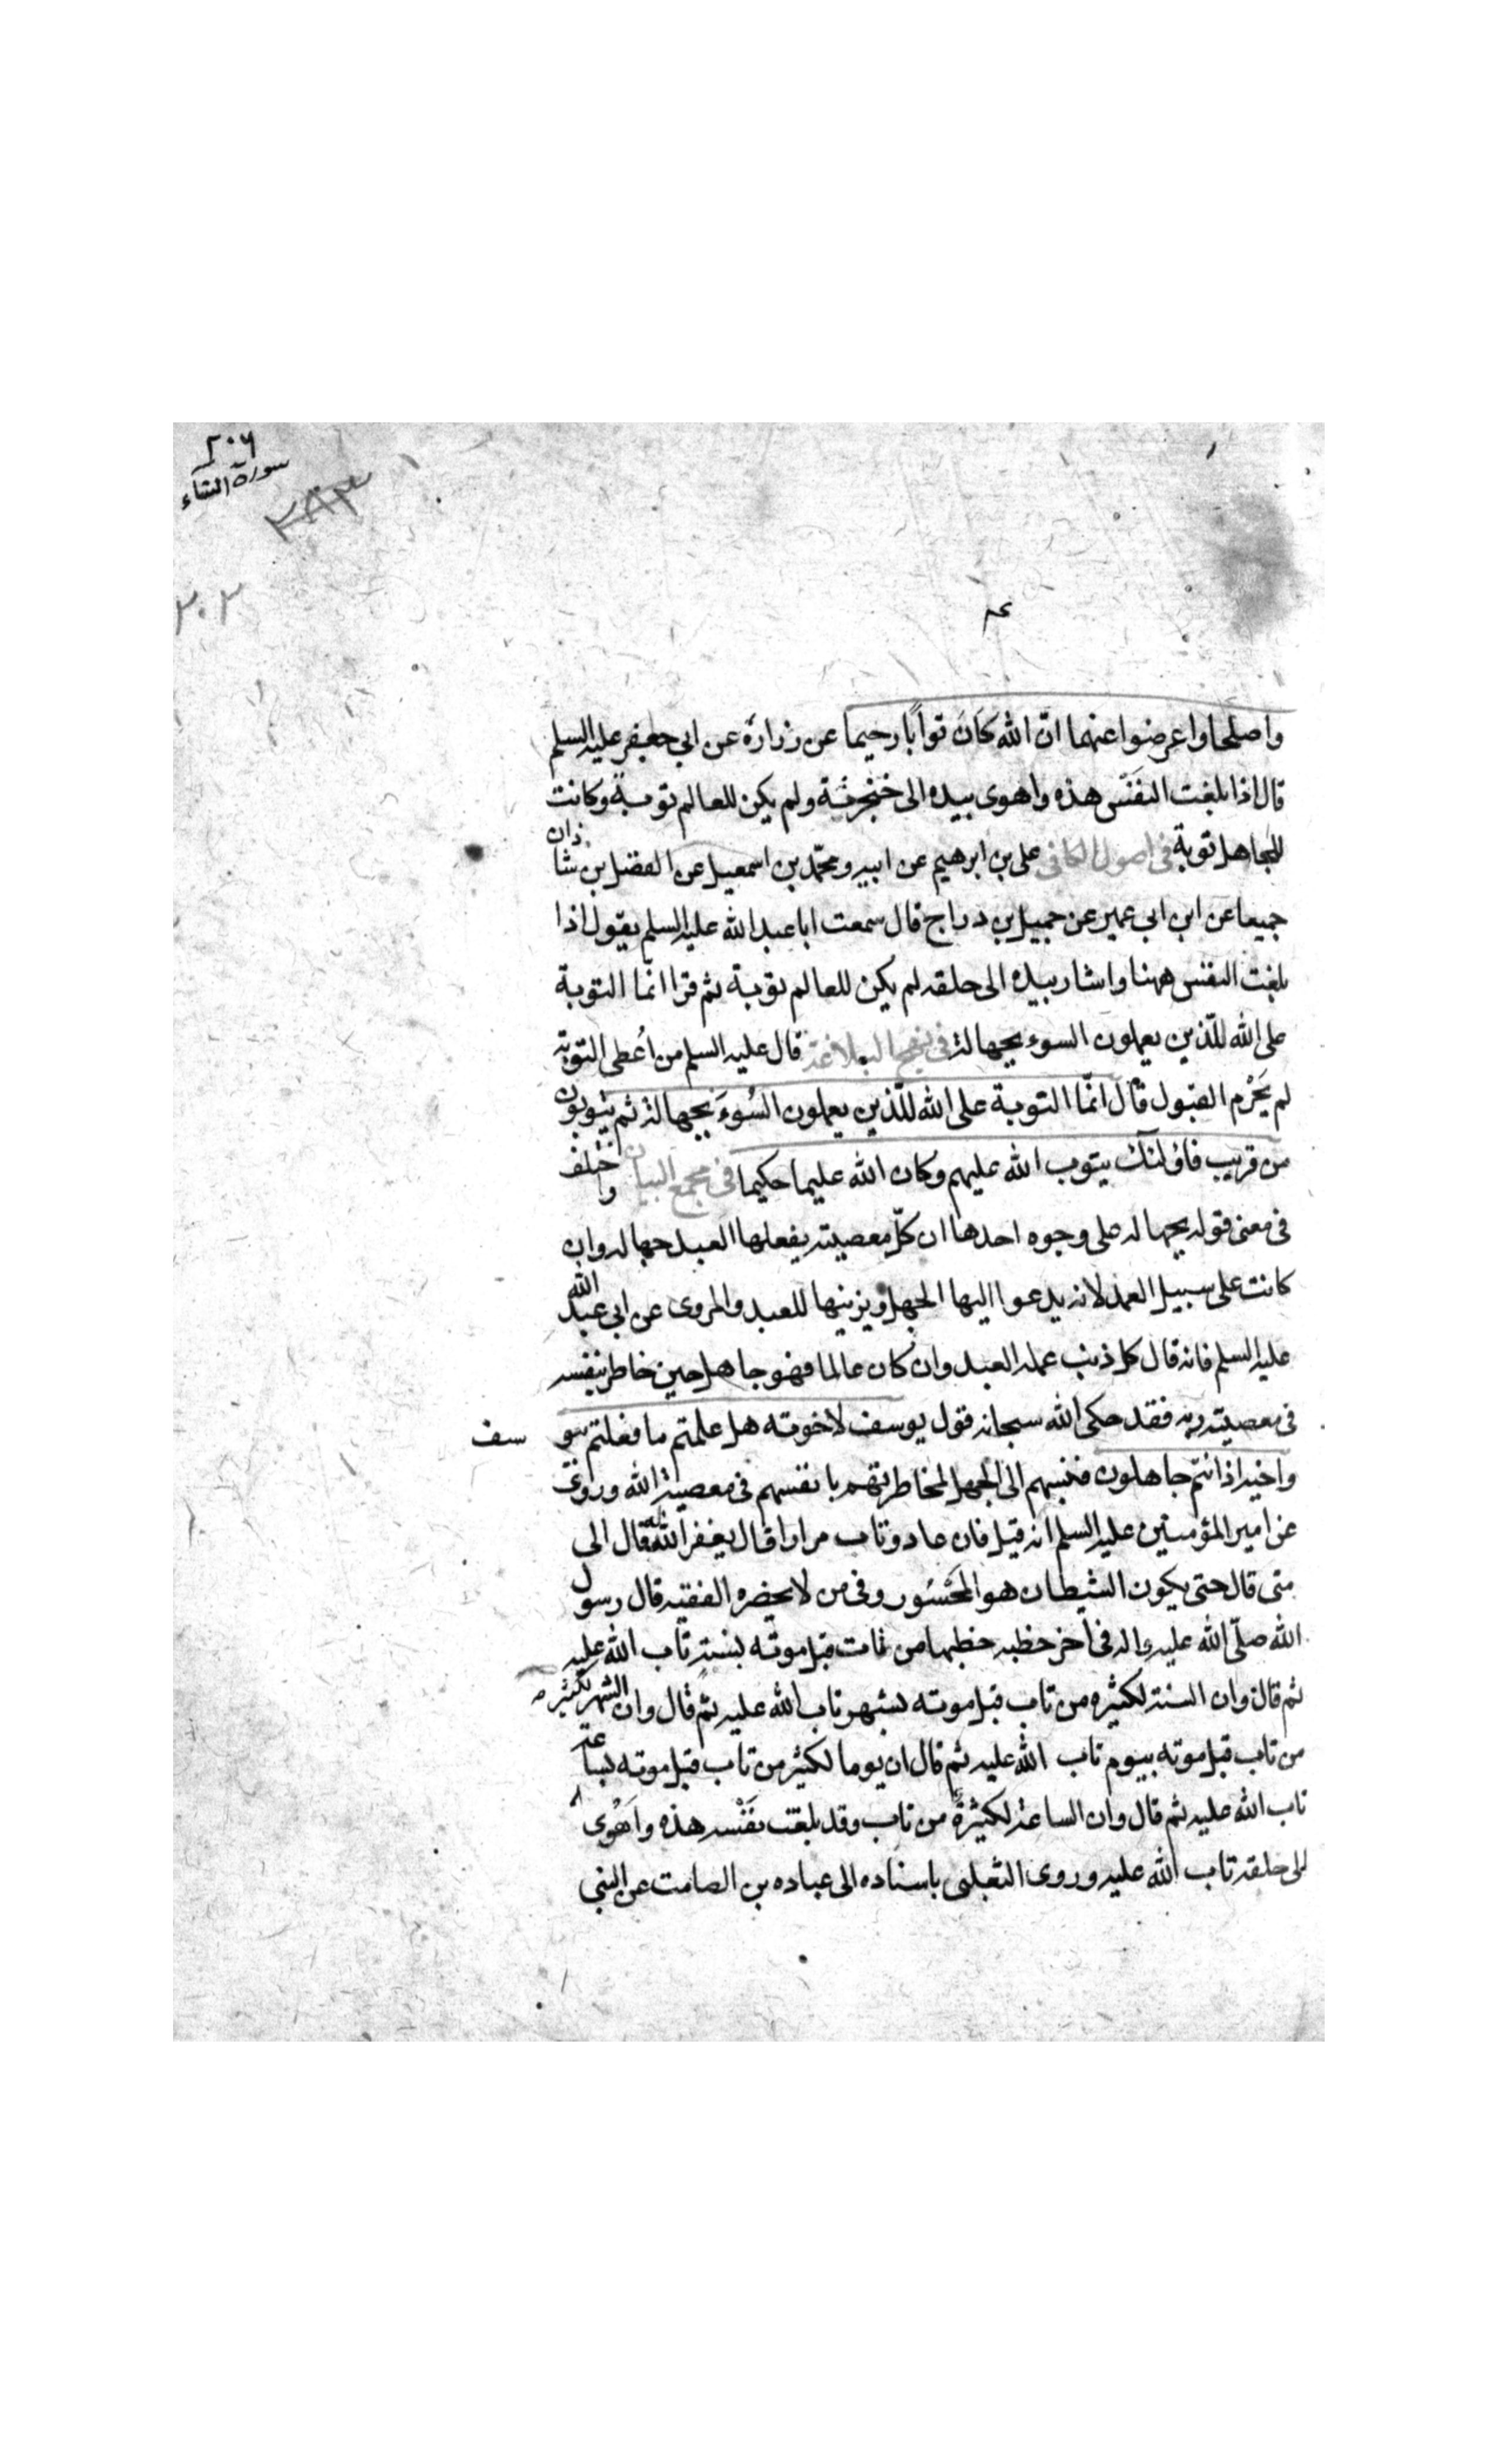 ٢٠٦
سورة النساء
٣٨٣
٣٠٣
واصلحا واعرضوا عنهما انّ الله كَانَ توابًا رحيما عن زرارة عن ابي جعفر عليه السلم
قال اذا بلغت النفَس هذه واهوى بيده الى حنجرته ولم يكن للعالم توبة وكانت
للجاهل توبة في اصول الكافي على بن ابرهيم عن ابيه ومحمّد بن اسمعيل عن الفضل بن شاذان
جميعا عن ابن ابي عمير عن جميل بن دراج قال سمعت ابا عبد الله عليه السلم يقول اذا
بلغت النفس ههنا واشار بيده الى حلقه لم يكن للعالم توبة ثم قرا انّما التوبة
على الله للّذين يعملون السوء بجهالة في نهج البلاغة قال عليه السلم من اُعطى التوبة
لم يَحْرُم القبول قال انّما التوبة على الله للّذين يعملون السُوءَ بجهالة ثم يتوبون
من قريب فاولئك يتوب الله عليهم وكان الله عليما حكيما في مجمع البيان واختلف
في معنى قوله بجهاله على وجوه احدها ان كلّ معصيته يفعلها العبد جهاله وان
كانت على سبيل العمد لانه يدعوا اليها الجهل ويزينها للعبد والمروى عن ابي عبد الله
عليه السلم فانه قال كل ذنب عمله العبد وان كان عالما فهو جاهل حين خاطر بنفسه
في معصيته ربه فقد حكى الله سبحانه قول يوسف لاخوته هل علمتم ما فعلتم بيو سف
واخيه اذ انتم جاهلون فنسبهم الى الجهل لمخاطرتهم بانفسهم في معصية الله وروى
عن امير المؤمنين عليه السلم انه قيل فان عاد وتاب مرارا قال يغفر الله له قال الى
متى قال حتى يكون الشيطان هو المَحْسُور وفى من لا يحضره الفقيه قال رسول
الله صلّى الله عليه واله فى آخر خطبه خطبها من تاب قبل موته بسنة تاب الله عليه
ثم قال وان السنة لكثيره من تاب قبل موته بشهر تاب الله عليه ثم قال وان الشهر لكثير
من تاب قبل موته بيوم تاب الله عليه ثم قال ان يوما لكثير من تاب قبل موته بساعة
تاب الله عليه ثم قال وان الساعة لكثيرةً من تاب وقد بلغت نَفْسه هذه واَهْوى
الى حلقه تاب الله عليه وروى الثعلبى باسناده الى عباده بن الصامت عن النبي